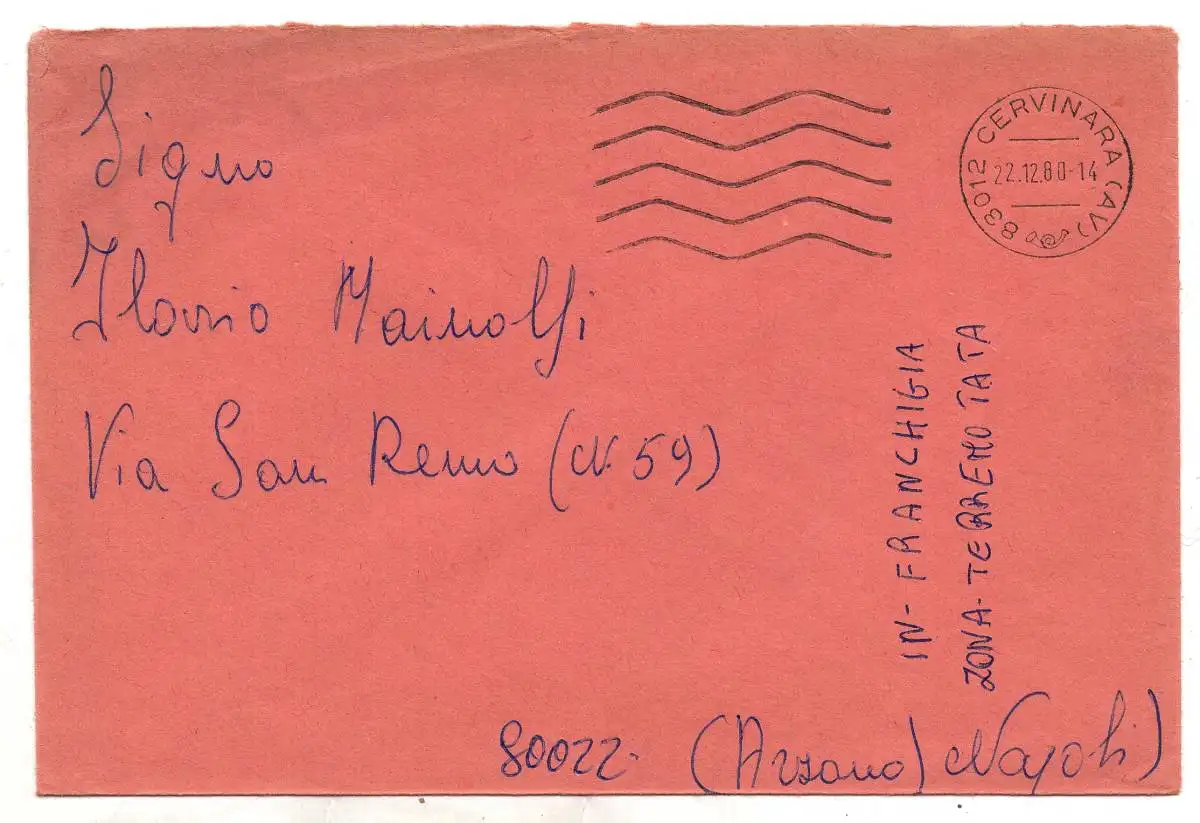 83012 CERVINARA (AV)
22.12.80-14
Signo
Mainolfi
Via San Remo (N. 59)
IN-FRANCHIGIA
ZONA-TERREMOTATA
80022. (Arzano) Napoli)